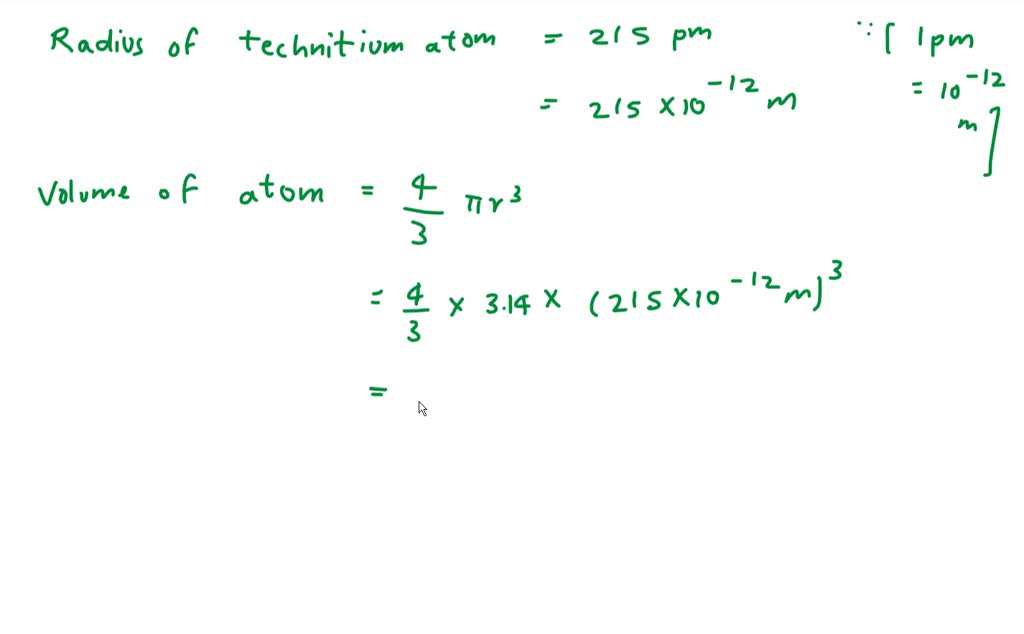 Radius of technitium atom = 215 pm ∵ [ 1pm
= 215 × 10⁻¹² m = 10⁻¹²
m ]
Volume of atom = 4/3 πr³
= 4/3 × 3.14 × (215 × 10⁻¹² m)³
=